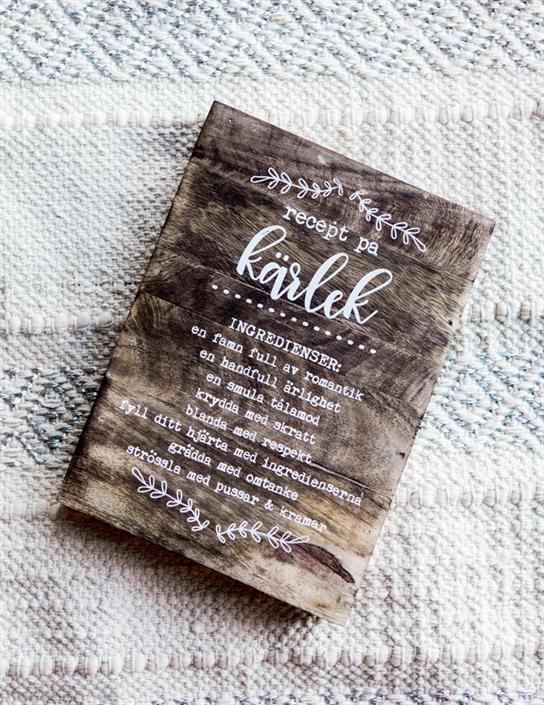 recept pa
kärlek
INGREDIENSER:
en famn full av romantik
en handfull ärlighet
en smula tålamod
krydda med skratt
blanda med respekt
fyll ditt hjärta med ingredienserna
grädda med omtanke
strössla med pussar & kramar